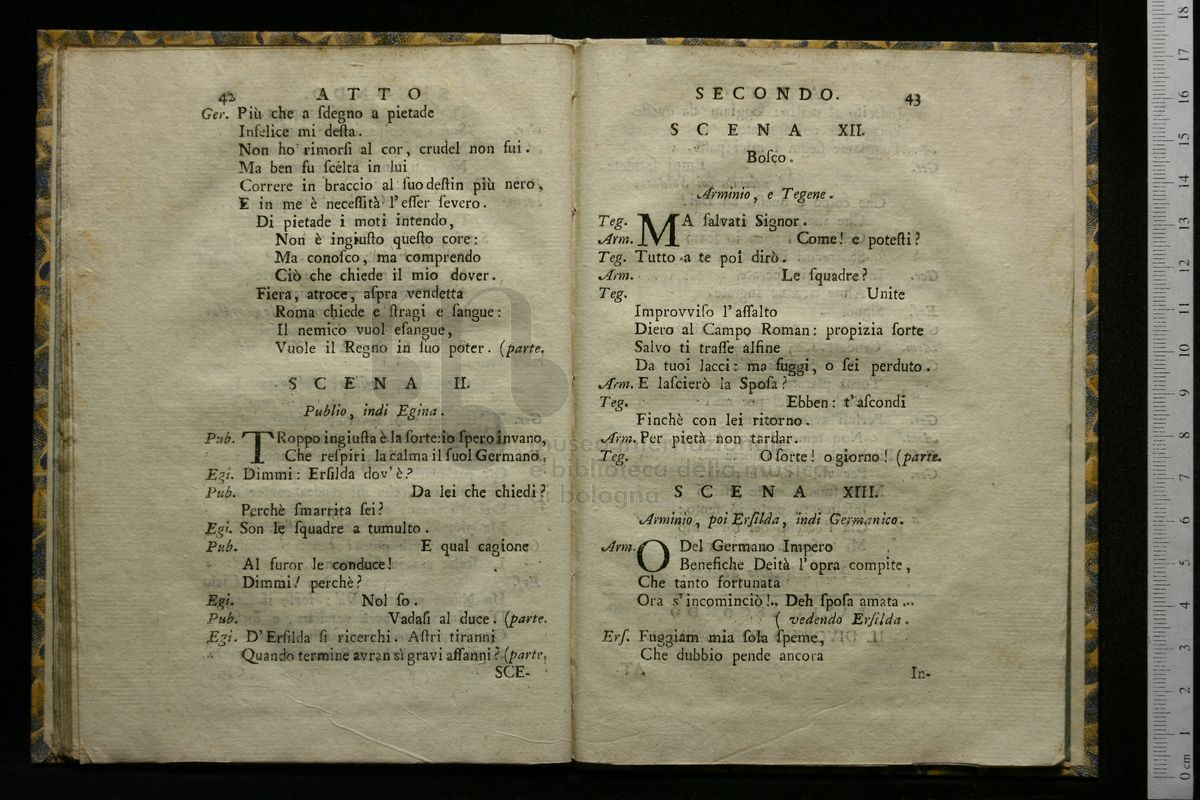 42 ATTO
Ger. Più che a ſdegno a pietade
Infelice mi deſta.
Non ho rimorſi al cor, crudel non fui.
Ma ben fu ſcelta in lui
Correre in braccio al ſuo deſtin più nero,
E in me è neceſſità l'eſſer ſevero.
Di pietade i moti intendo,
Non è ingiuſto queſto core:
Ma conoſco, ma comprendo
Ciò che chiede il mio dover.
Fiera, atroce, aſpra vendetta
Roma chiede e ſtragi e ſangue:
Il nemico vuol eſangue,
Vuole il Regno in ſuo poter. (parte.
SCENA II.
Publio, indi Egina.
Pub. TRoppo ingiuſta è la ſorte: io ſpero invano,
Che reſpiri la calma il ſuol Germano.
Egi. Dimmi: Erſilda dov'è?
Pub. Da lei che chiedi?
Perchè ſmarrita ſei?
Egi. Son le ſquadre a tumulto.
Pub. E qual cagione
Al furor le conduce!
Dimmi! perchè?
Egi. Nol ſo.
Pub. Vadaſi al duce. (parte.
Egi. D'Erſilda ſi ricerchi. Aſtri tiranni
Quando termine avran sì gravi affanni? (parte.
SCE-
SECONDO. 43
SCENA XII.
Boſco.
Arminio, e Tegene.
Teg. MA ſalvati Signor.
Arm. Come! e poteſti?
Teg. Tutto a te poi dirò.
Arm. Le ſquadre?
Teg. Unite
Improvviſo l'aſſalto
Diero al Campo Roman: propizia ſorte
Salvo ti traſſe alfine
Da tuoi lacci: ma fuggi, o ſei perduto.
Arm. E laſcierò la Spoſa?
Teg. Ebben: t'aſcondi
Finchè con lei ritorno.
Arm. Per pietà non tardar.
Teg. O ſorte! o giorno! (parte.
SCENA XIII.
Arminio, poi Erſilda, indi Germanico.
Arm. O Del Germano Impero
Benefiche Deità l'opra compite,
Che tanto fortunata
Ora s'incominciò!.. Deh ſpoſa amata...
( vedendo Erſilda.
Erſ. Fuggiam mia ſola ſpeme,
Che dubbio pende ancora
In-
museo internazionale
e biblioteca della musica
di bologna
0 cm 1 2 3 4 5 6 7 8 9 10 11 12 13 14 15 16 17 18